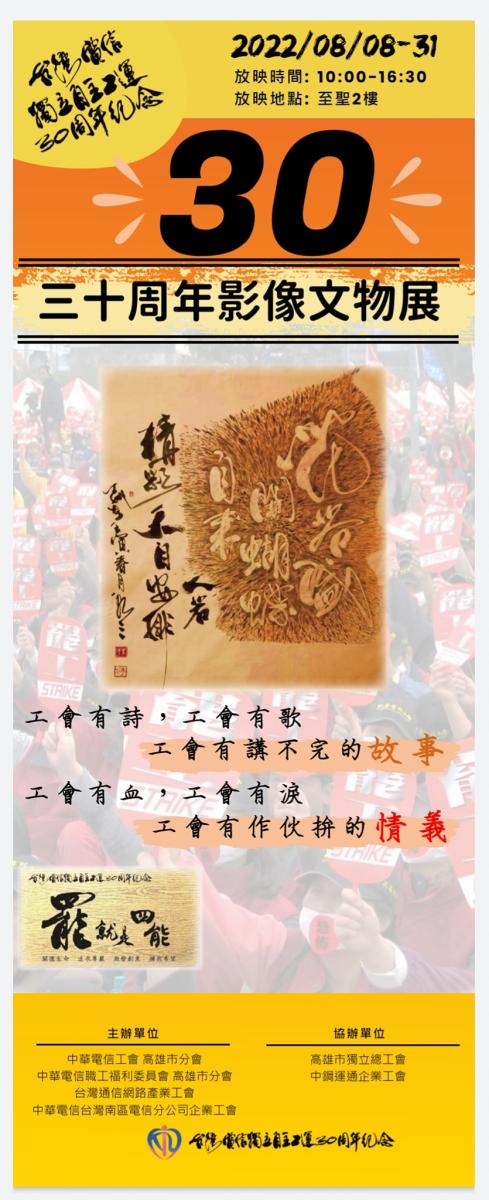 台灣電信
獨立自主工運
30周年紀念
2022/08/08-31
放映時間: 10:00-16:30
放映地點: 至聖2樓
30
三十周年影像文物展
花若盛
開蝴蝶
自來
人若
精彩
天自安排
罷工
STRIKE
工會有詩，工會有歌
工會有講不完的故事
工會有血，工會有淚
工會有作伙拚的情義
台灣電信獨立自主工運30周年紀念
罷就是四能
主辦單位
中華電信工會 高雄市分會
中華電信職工福利委員會 高雄市分會
台灣通信網路產業工會
中華電信台灣南區電信分公司企業工會
協辦單位
高雄市獨立總工會
中鋼運通企業工會
台灣電信獨立自主工運30周年紀念